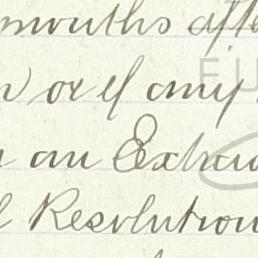 months afte
or of any
an Extrao
Resolution